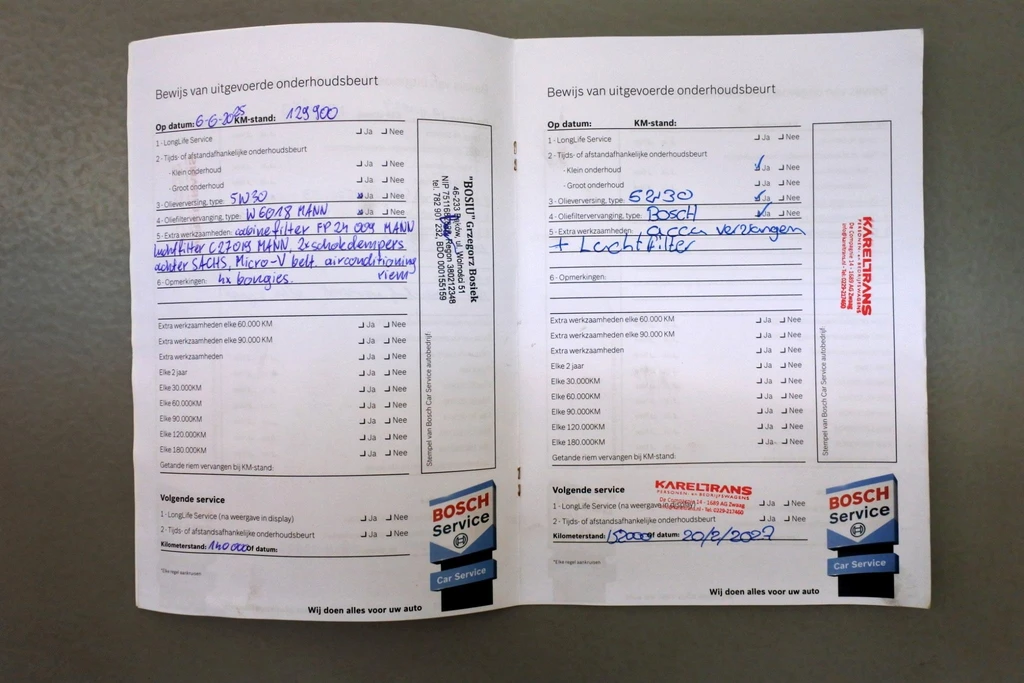 Bewijs van uitgevoerde onderhoudsbeurt
Op datum: 6-6-2025 KM-stand: 129900
1 - LongLife Service Ja Nee
2 - Tijds- of afstandsafhankelijke onderhoudsbeurt
- Klein onderhoud Ja Nee
- Groot onderhoud Ja Nee
3 - Olieverversing, type: 5W30 Ja Nee
4 - Oliefiltervervanging, type: W6018 MANN Ja Nee
5 - Extra werkzaamheden: cabinefilter FP 24 009 MANN
luchtfilter C27019 MANN, 2x schokdempers
achter SACHS, Micro-V belt. airconditioning
riem
6 - Opmerkingen: 4x bougies.
Extra werkzaamheden elke 60.000 KM Ja Nee
Extra werkzaamheden elke 90.000 KM Ja Nee
Extra werkzaamheden Ja Nee
Elke 2 jaar Ja Nee
Elke 30.000KM Ja Nee
Elke 60.000KM Ja Nee
Elke 90.000KM Ja Nee
Elke 120.000KM Ja Nee
Elke 180.000KM Ja Nee
Getande riem vervangen bij KM-stand:
"BOSIU" Grzegorz Bosiek
46-233 ul. Wolności 51
NIP Regon 380212348
tel. 782 232, BDO 000155159
Stempel van Bosch Car Service autobedrijf:
Volgende service
1 - LongLife Service (na weergave in display) Ja Nee
2 - Tijds- of afstandsafhankelijke onderhoudsbeurt Ja Nee
Kilometerstand: 140000 of datum:
*Elke regel aankruisen
BOSCH
Service
Car Service
Wij doen alles voor uw auto
Bewijs van uitgevoerde onderhoudsbeurt
Op datum: KM-stand:
1 - LongLife Service Ja Nee
2 - Tijds- of afstandsafhankelijke onderhoudsbeurt
- Klein onderhoud Ja Nee
- Groot onderhoud Ja Nee
3 - Olieverversing, type: Ja Nee
4 - Oliefiltervervanging, type: Bosch Ja Nee
5 - Extra werkzaamheden: accu vervangen
+ Luchtfilter
6 - Opmerkingen:
Extra werkzaamheden elke 60.000 KM Ja Nee
Extra werkzaamheden elke 90.000 KM Ja Nee
Extra werkzaamheden Ja Nee
Elke 2 jaar Ja Nee
Elke 30.000KM Ja Nee
Elke 60.000KM Ja Nee
Elke 90.000KM Ja Nee
Elke 120.000KM Ja Nee
Elke 180.000KM Ja Nee
Getande riem vervangen bij KM-stand:
KARELTRANS
PERSONEN- en BEDRIJFSWAGENS
De Compagnie 14 - 1689 AG Zwaag
info@kareltrans.nl - Tel. 0229-217460
Stempel van Bosch Car Service autobedrijf:
Volgende service
KARELTRANS
PERSONEN- en BEDRIJFSWAGENS
De Compagnie 14 - 1689 AG Zwaag
info@kareltrans.nl - Tel. 0229-217460
1 - LongLife Service (na weergave in display) Ja Nee
2 - Tijds- of afstandsafhankelijke onderhoudsbeurt Ja Nee
Kilometerstand: 152000 of datum: 20/2/2027
*Elke regel aankruisen
BOSCH
Service
Car Service
Wij doen alles voor uw auto